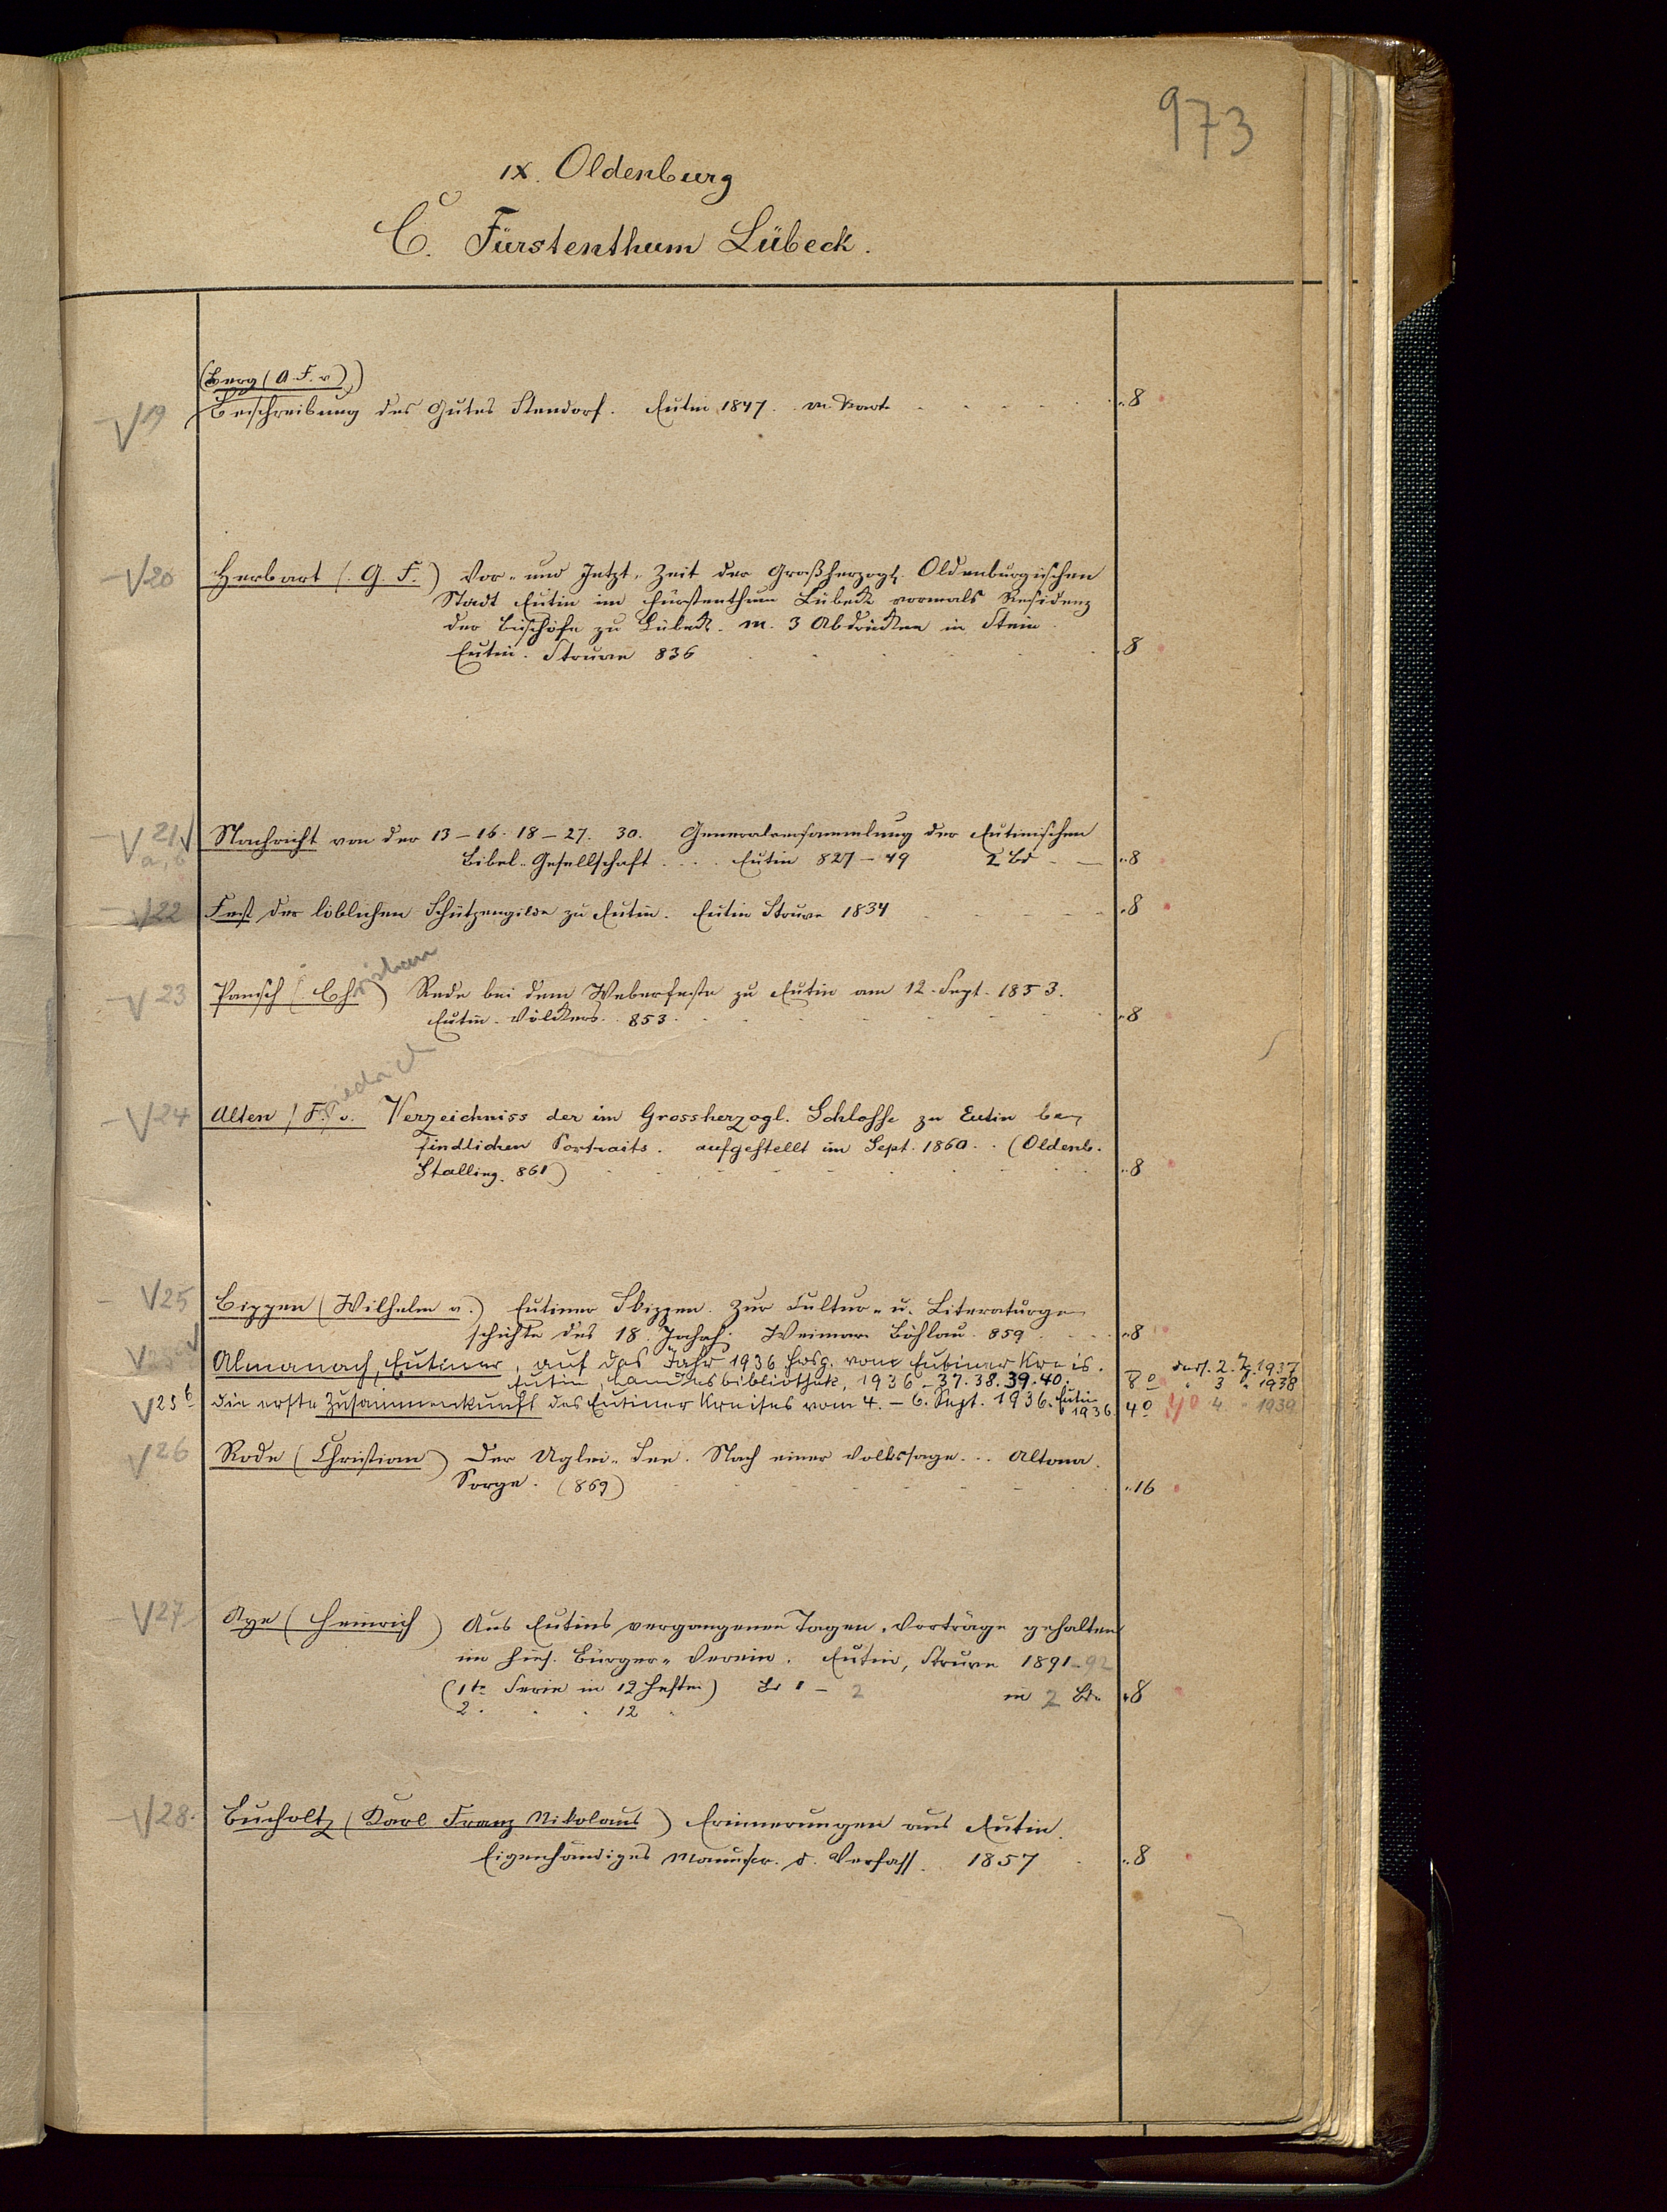 973
IX. Oldenburg
C. Fürstenthum Lübeck.
(Berg (A. F. v.))
V 19 Beschreibung des Gutes Stendorf. Eutin 1847. m. Kart. 8
V 20 Herbart (G. F.) Vor- und Jetzt-Zeit der Großherzogl. Oldenburgischen
Stadt Eutin im Fürstenthum Lübeck vormals Residenz
der Bischöfe zu Lübeck. m. 3 Abdrücken in Stein.
Eutin. Struve 836 8
V 21 a, b Nachricht von der 13-16. 18-27. 30. Generalversammlung der Eutinischen
Bibel-Gesellschaft .... Eutin 827-49 2 Bd 8
V 22 Fest der löblichen Schützengilde zu Eutin. Eutin Struve 1834 8
V 23 Pansch (Christian) Rede bei dem Weberfeste zu Eutin am 12. Sept. 1853.
Eutin. Völckers. 853. 8
V 24 Alten (Friedrich v. Verzeichniss der im Grossherzogl. Schlosse zu Eutin be-
findlichen Portraits. aufgestellt im Sept. 1860. . (Oldenb.
Stalling. 861) 8
V 25 Bippen (Wilhelm v.) Eutiner Skizzen. Zur Cultur- u. Literaturge-
schichte des 18. Jahrh. Weimar Böhlau. 859. 8
V 25a Almanach, Eutiner, auf das Jahr 1936 hrsg. vom Eutiner Kreis.
Eutin, Landesbibliothek, 1936-37. 38. 39. 40. 8o
dass. 2. Jg. 1937
" 3 " 1938
" 4. " 1939
V 25b Die erste Zusammenkunft des Eutiner Kreises vom 4. - 6. Sept. 1936. Eutin 1936. 4o 40
V 26 Rode (Christian) Der Uglei-See. Nach einer Volkssage... Altona.
Sorge. (869) 16
V 27 Aye (Heinrich) Aus Eutins vergangenen Tagen, Vorträge gehalten
im hies. Bürger-Verein. Eutin, Struve 1891-92
(1te Serie in 12 Heften) Bd 1 - 2 in 2 Bde 8
2. " " 12 "
V 28. Bucholtz (Karl Franz Nikolaus) Erinnerungen aus Eutin.
Eigenhändiges Manuscr. d. Verfass. 1857 8